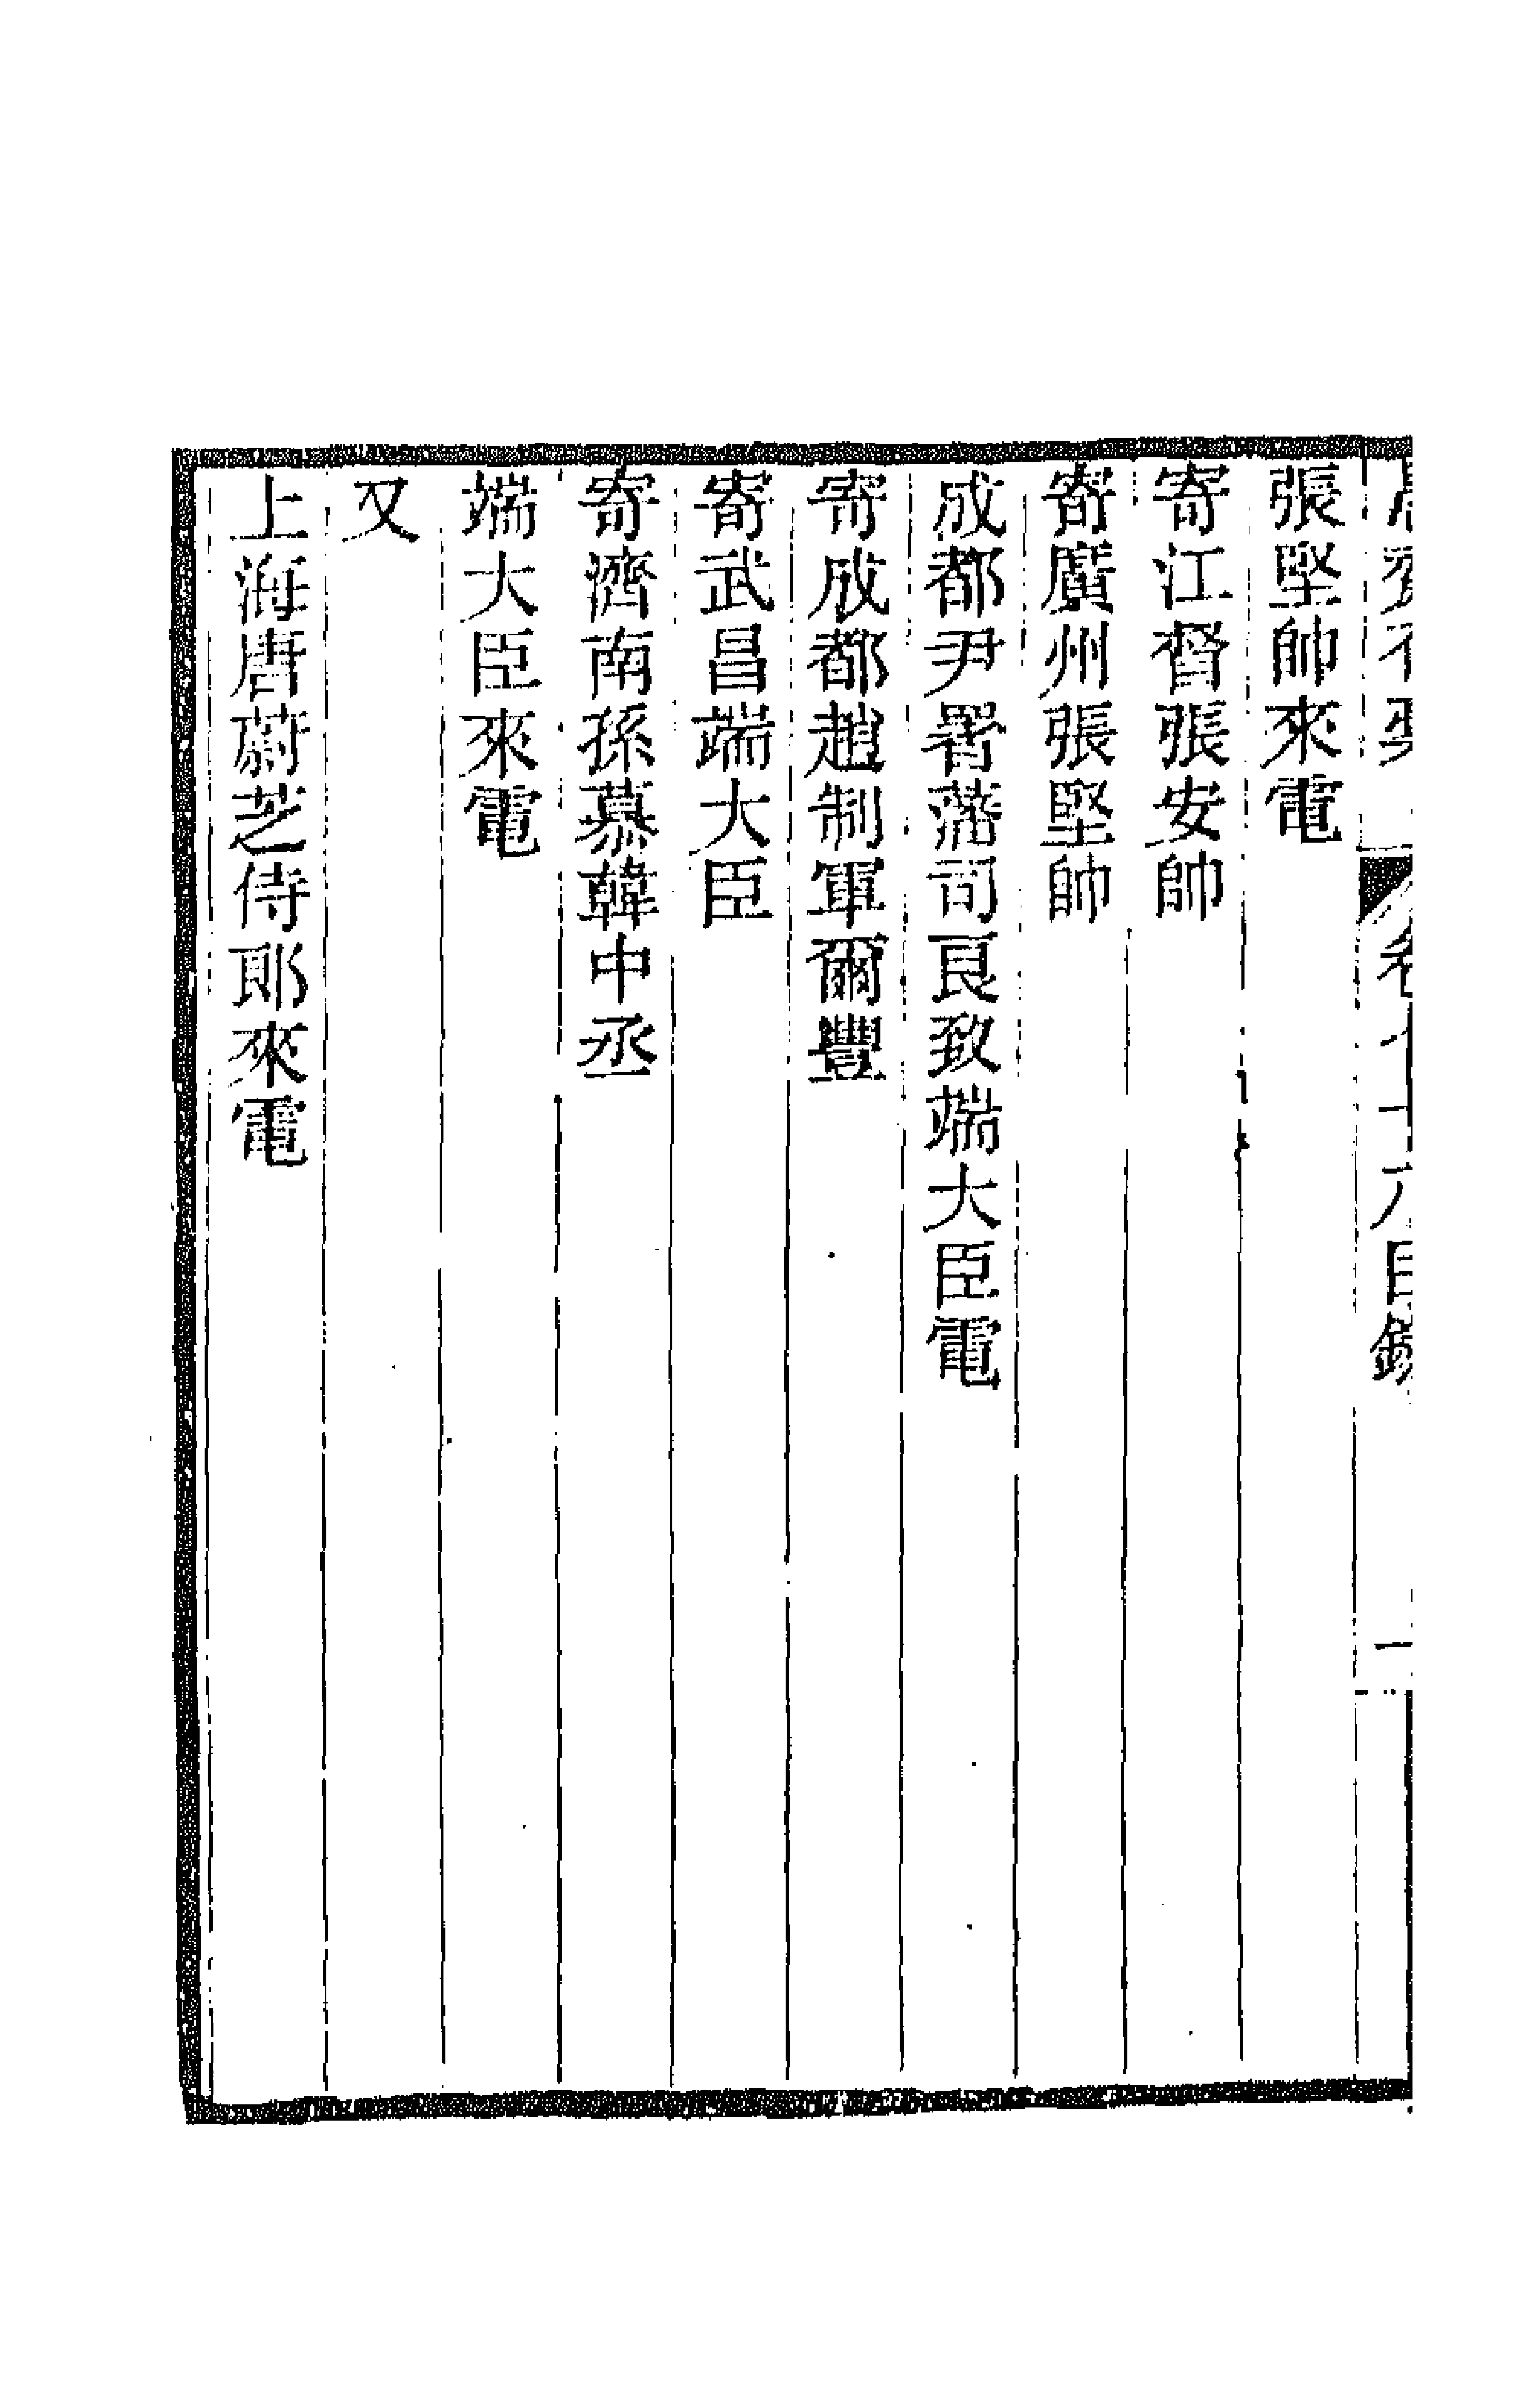 張堅帥來電
寄江督張安帥
寄廣州張堅帥
成都尹署藩司良致端大臣電
寄成都趙制軍爾豐
寄武昌端大臣
寄濟南孫慕韓中丞
端大臣來電
又
上海唐蔚芝侍郞來電